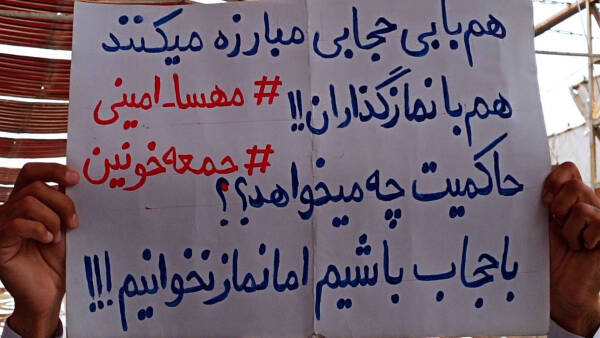 هم با بی حجابی مبارزه میکنند
هم با نمازگذاران!!
# مهسا_امینی
حاکمیت چه میخواهد؟؟
# جمعه خونین
با حجاب باشیم اما نماز نخوانیم!!!